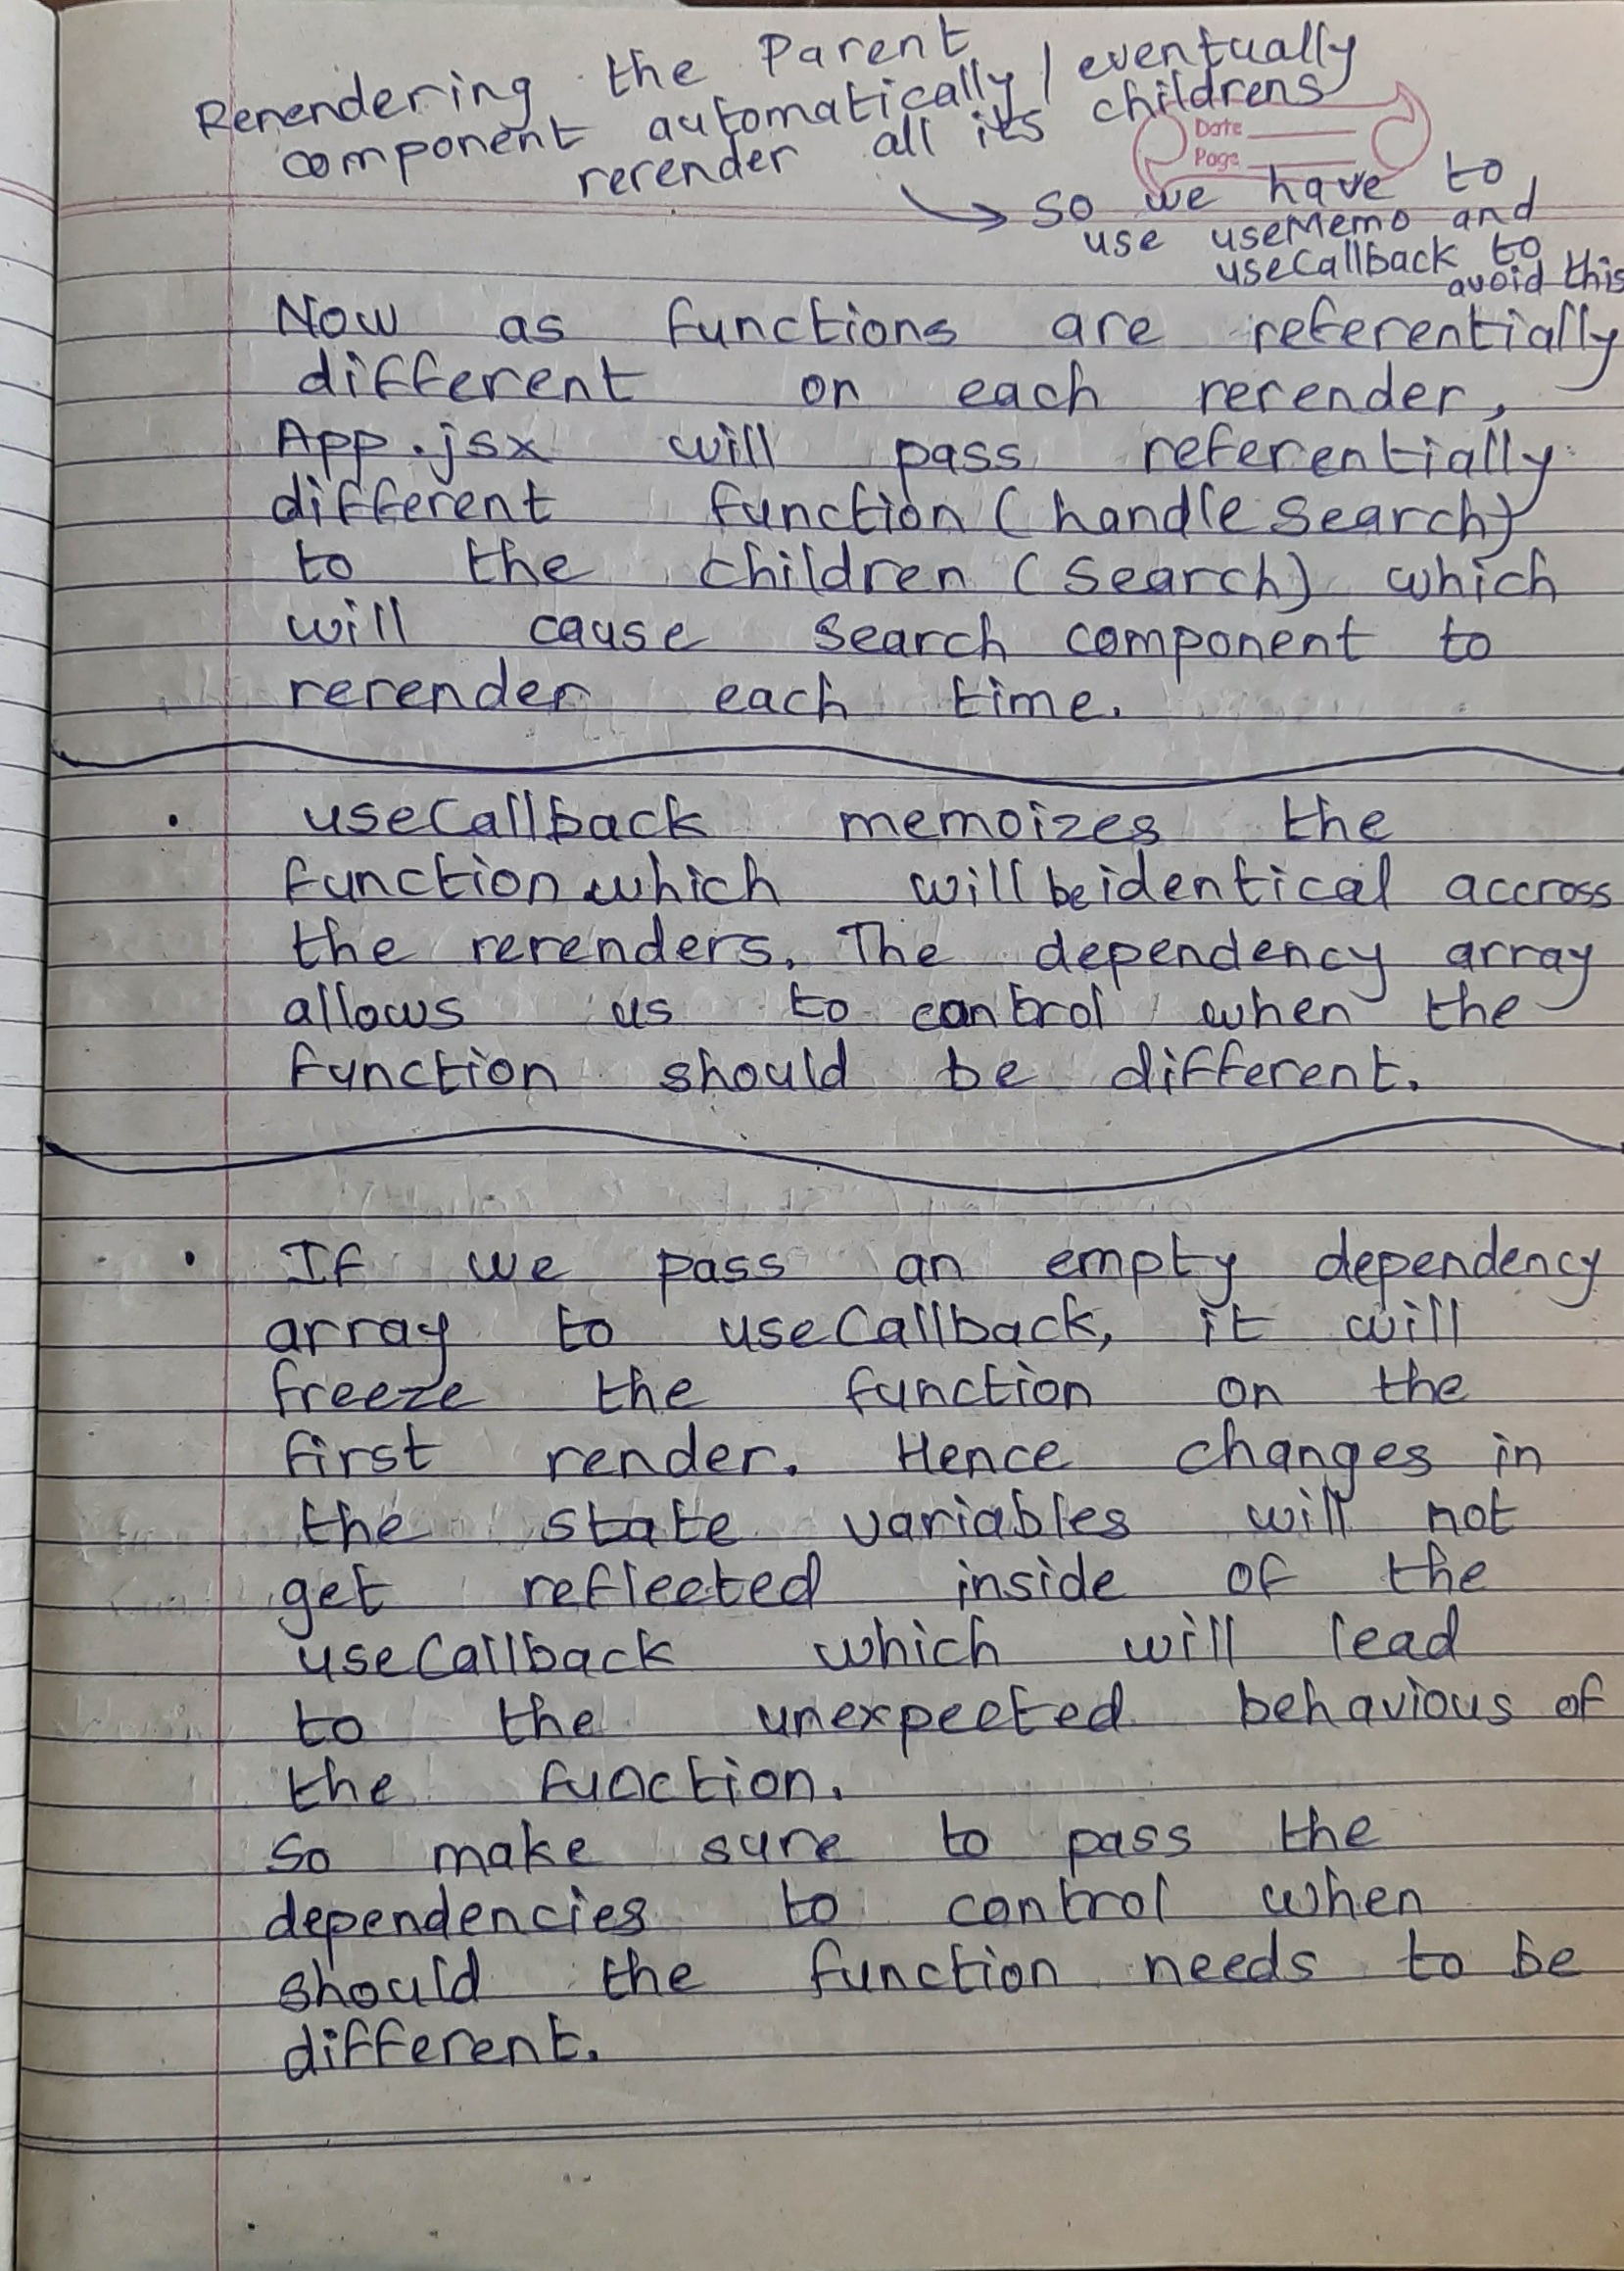 Rerendering the Parent
component automatically / eventually
rerender all its childrens
Date
Page
→ so we have to
use useMemo and
useCallback to
avoid this
Now as functions are referentially
different on each rerender,
App.jsx will pass referentially
different function (handleSearch)
to the children (Search) which
will cause search component to
rerender each time.
• useCallback memoizes the
function which will be identical accross
the rerenders. The dependency array
allows us to control when the
function should be different.
• If we pass an empty dependency
array to useCallback, it will
freeze the function on the
first render. Hence changes in
the state variables will not
get reflected inside of the
useCallback which will lead
to the unexpected behavious of
the function.
So make sure to pass the
dependencies to control when
should the function needs to be
different.